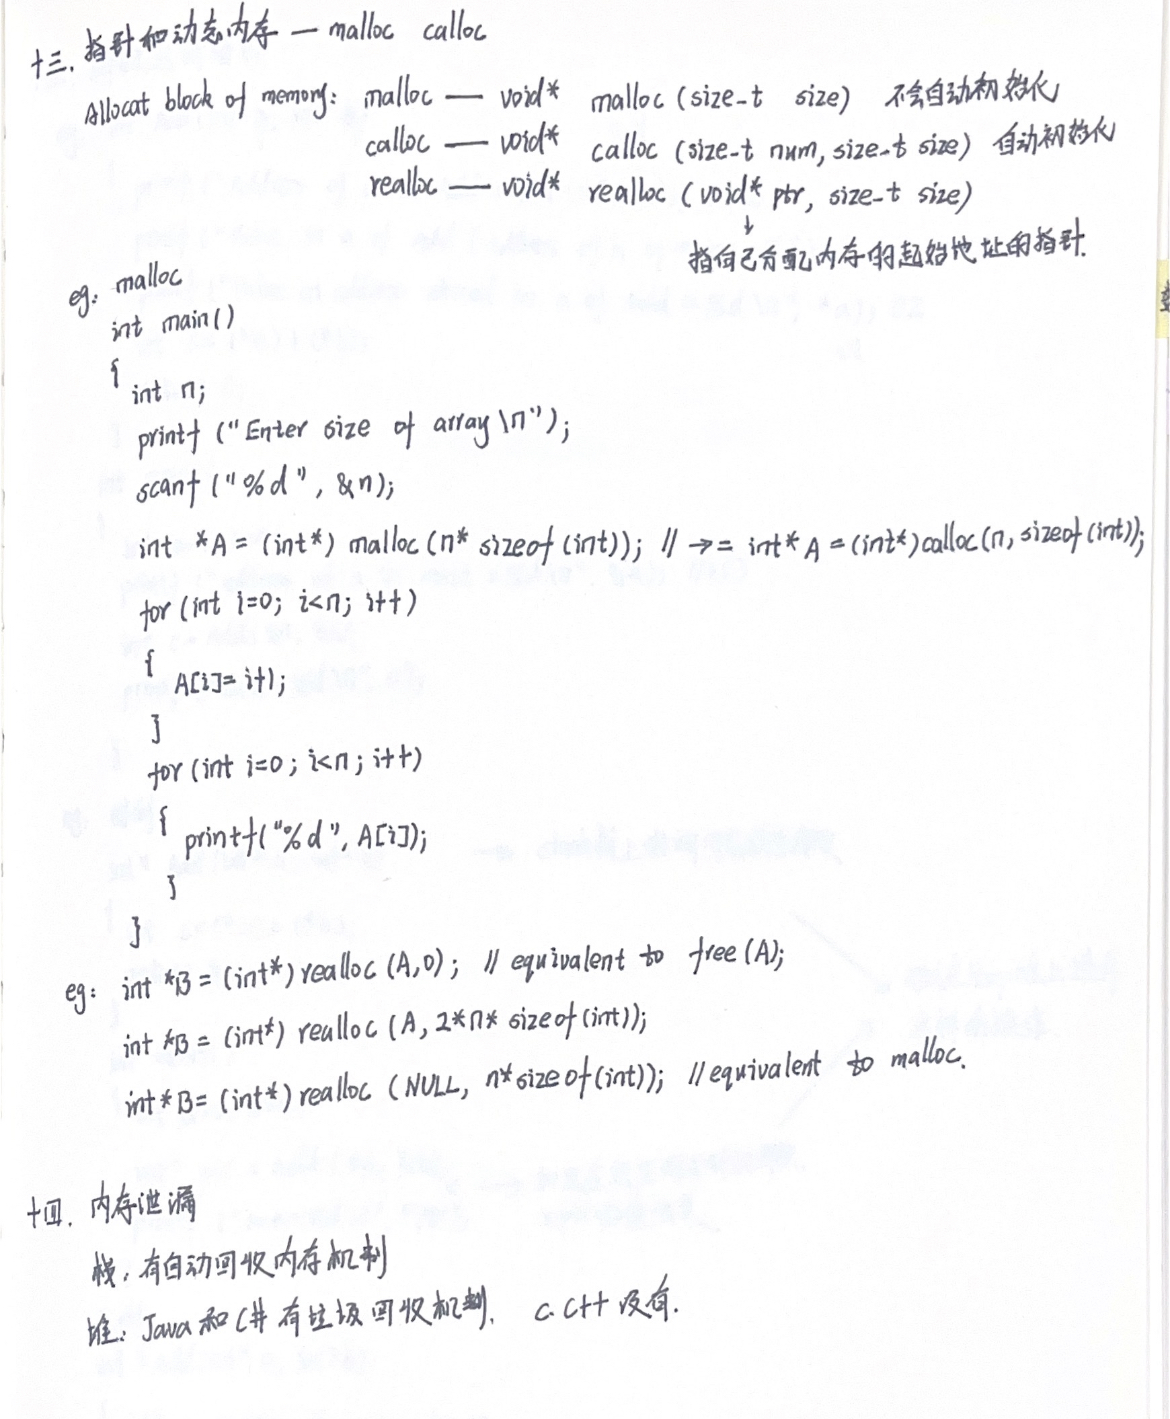 十三. 指针和动态内存 — malloc calloc
Allocat block of memory: malloc — void* malloc (size-t size) 不会自动初始化
calloc — void* calloc (size-t num, size-t size) 自动初始化
realloc — void* realloc (void* ptr, size-t size)
↓
指向已分配内存的起始地址的指针.
eg: malloc
int main()
{
int n;
printf ("Enter size of array \n");
scanf ("%d", &n);
int *A = (int*) malloc (n* sizeof (int)); // → = int* A = (int*) calloc (n, sizeof (int));
for (int i=0; i<n; i++)
{
A[i]= i+1;
}
for (int i=0; i<n; i++)
{
printf("%d", A[i]);
}
}
eg: int *B = (int*) realloc (A,0); // equivalent to free(A);
int *B = (int*) realloc (A, 2*n* sizeof (int));
int* B= (int*) realloc (NULL, n*sizeof(int)); // equivalent to malloc.
十四. 内存泄漏
栈: 有自动回收内存机制
堆: Java 和 C# 有垃圾回收机制. C. C++ 没有.